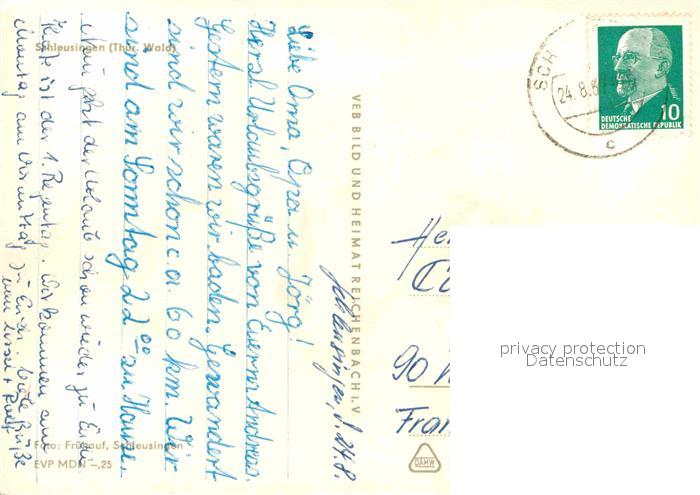 Schleusingen (Thür. Wald)
Schleusingen, d. 24.8.
Liebe Oma, Opa u. Jörg!
Herzl. Urlaubsgrüße von Euerm Andreas.
Gestern waren wir baden. Gewandert
sind wir schon ca. 60 km. Wir
sind am Sonntag 22⁰⁰ zu Hause.
Nun geht der Urlaub schon wieder zu Ende.
Heute ist der 1. Regentag. Wir kommen am
Montag am Vormittag zu Euch. Viele Grüße
Foto: Frühauf, Schleusingen
EVP MDN –,25
VEB BILD UND HEIMAT REICHENBACH I. V
DAMW
SCH
24.8.6
c
DEUTSCHE
DEMOKRATISCHE REPUBLIK
10
90
privacy protection
Datenschutz